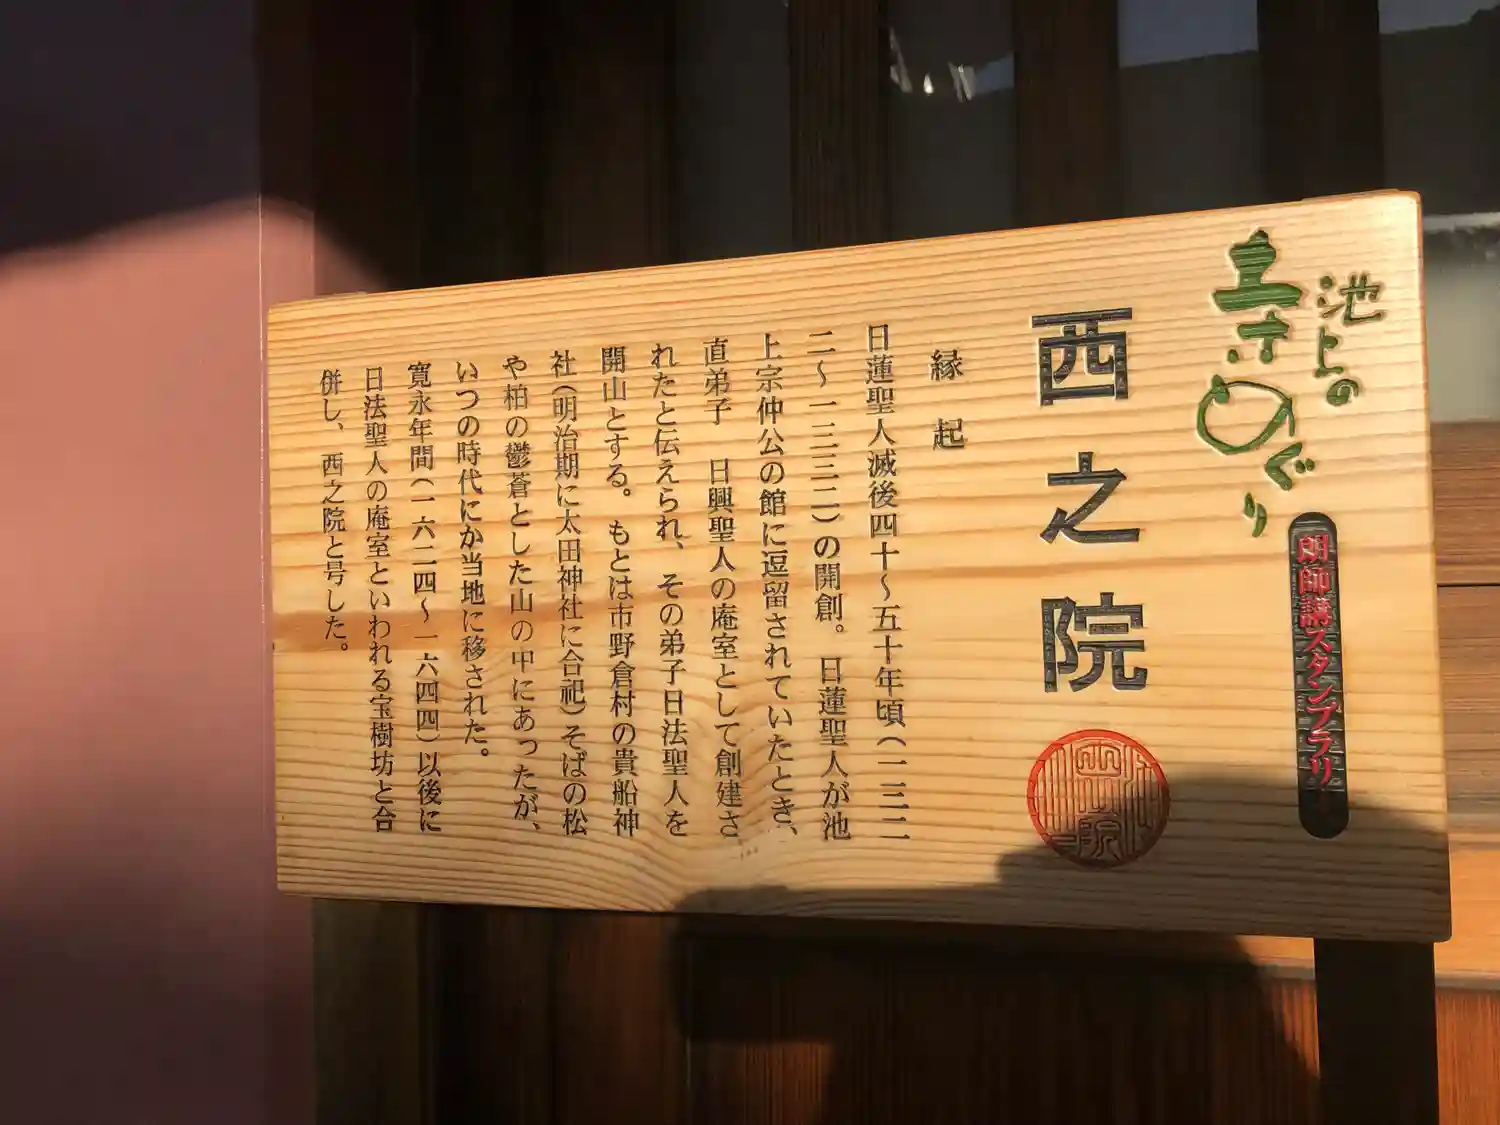 池上の
寺めぐり
朗師講スタンプラリー
西之院
縁起
日蓮聖人滅後四十〜五十年頃(一三二
二〜一三三二)の開創。日蓮聖人が池
上宗仲公の館に逗留されていたとき、
直弟子 日興聖人の庵室として創建さ
れたと伝えられ、その弟子日法聖人を
開山とする。もとは市野倉村の貴船神
社(明治期に太田神社に合祀)そばの松
や柏の鬱蒼とした山の中にあったが、
いつの時代にか当地に移された。
寛永年間(一六二四〜一六四四)以後に
日法聖人の庵室といわれる宝樹坊と合
併し、西之院と号した。